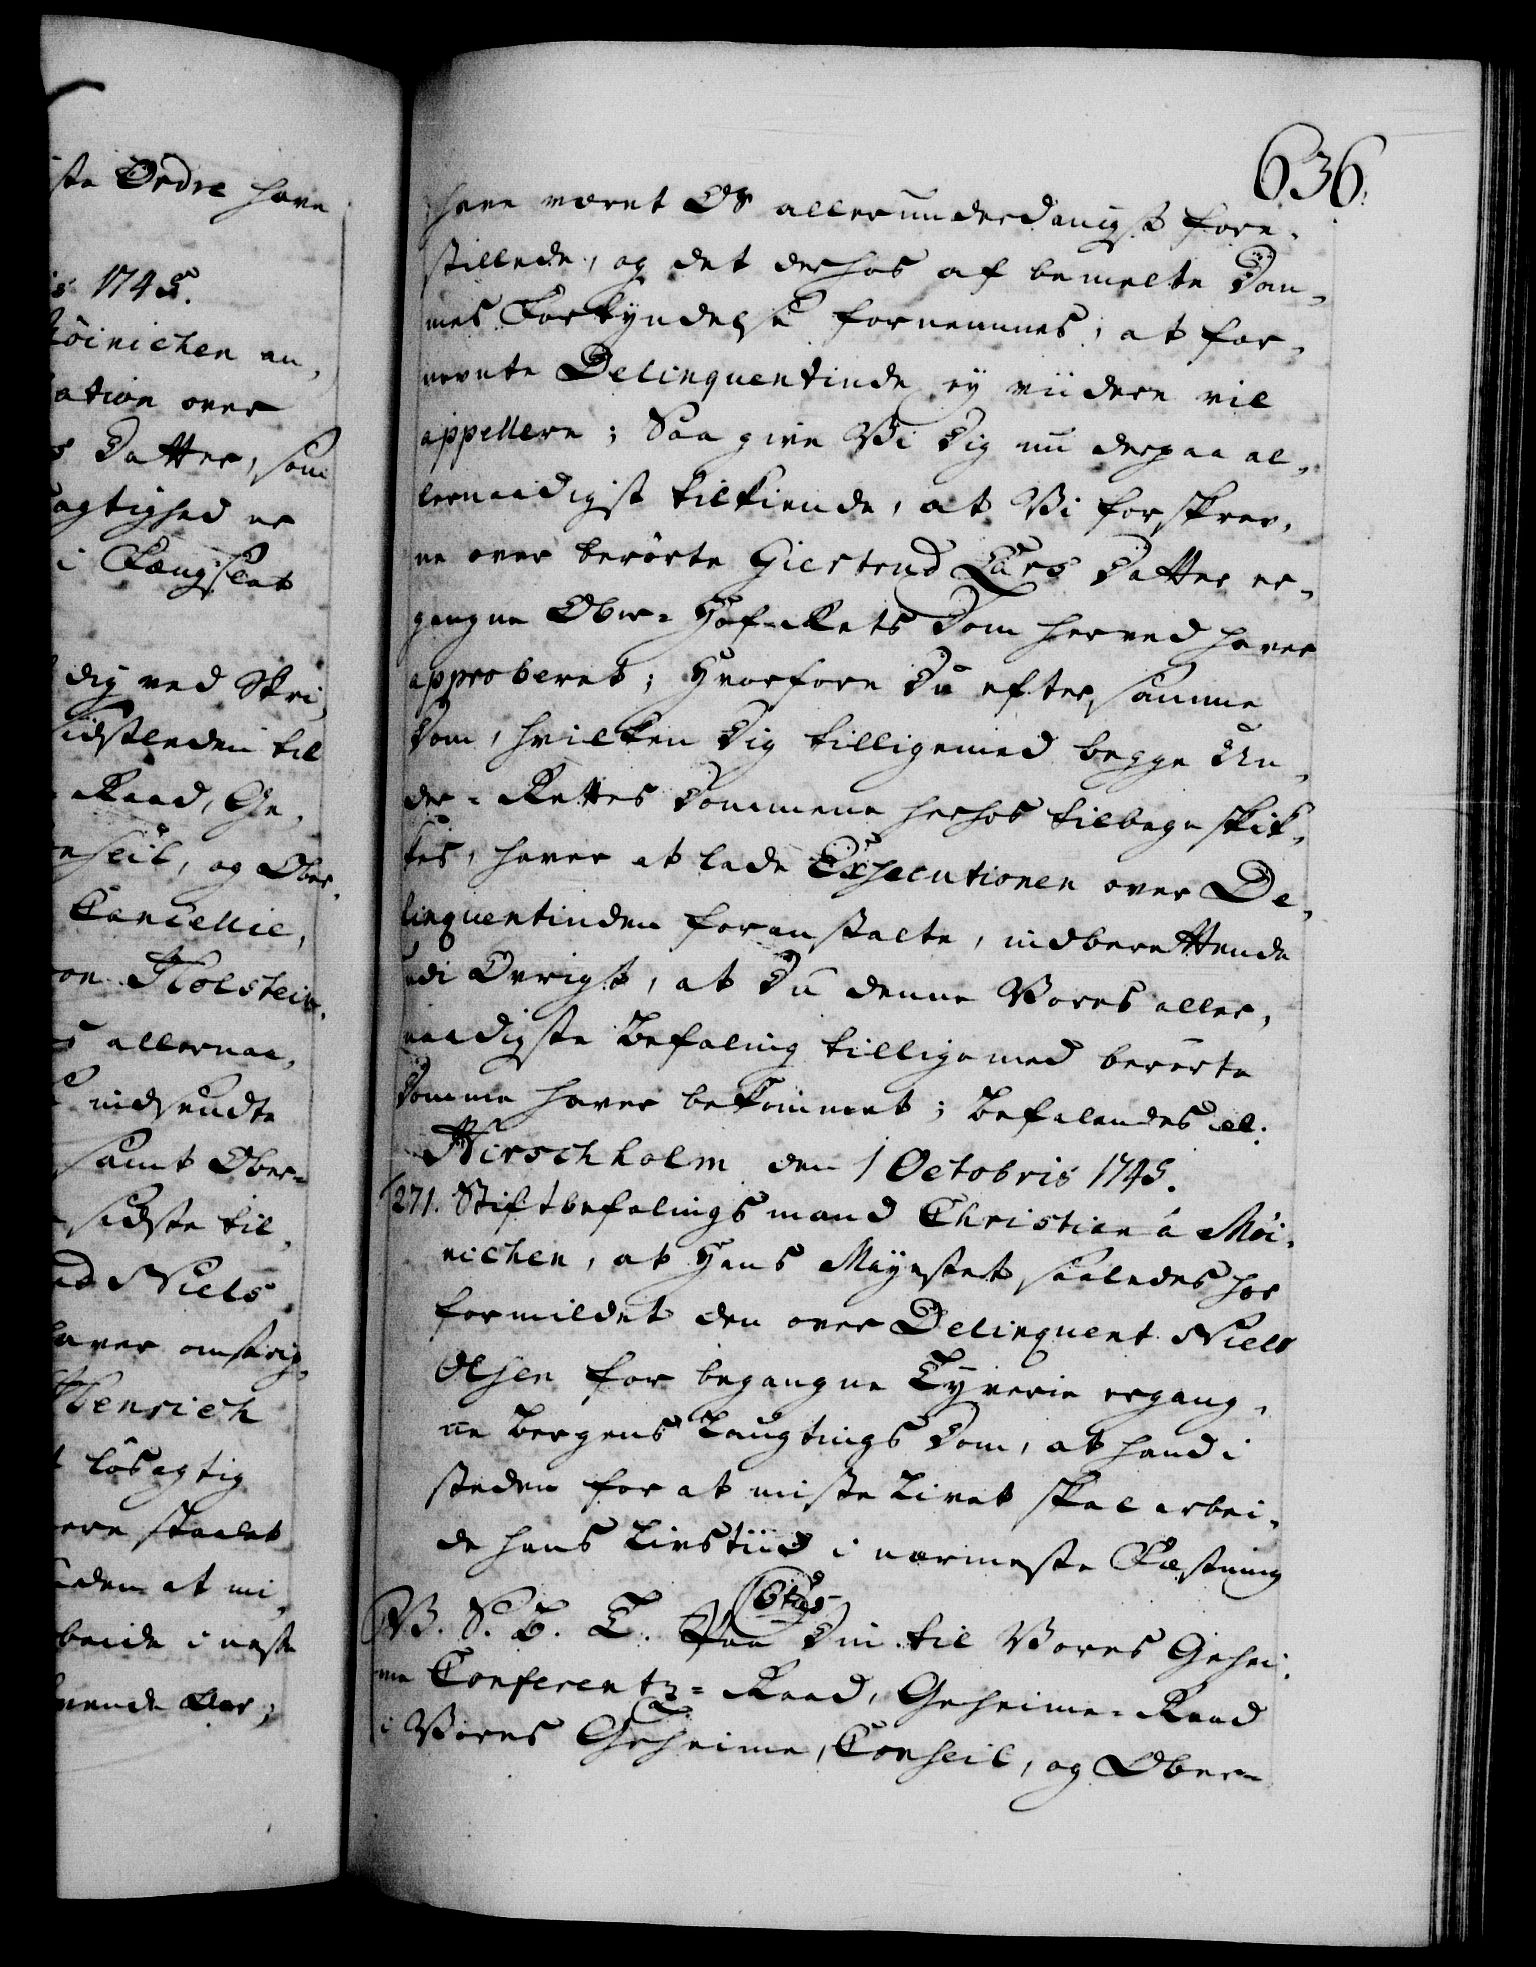 ste Ordre have
is 1745.
Möinichen an-
ation over
s Datter, som
agtighed er
i Fængslet
dig ved Skri-
sidstleden til
Raad, Ge-
nseil, og Ober-
Cancellie,
von Holstein.
allernaa-
indsendte
samt Ober-
sidste til
Niels
haver omskrig-
Henrich
lösagtig
staalet
eden at mi-
beide i næste
Aar;
636.
have været Os allerunderdanigst fore-
stillede, og det derhos af bemelte Dom-
mes Forkyndelse fornemmes, at for-
nevnte Delinquentinde ey viidere vil
appellere; Saa give Vi Dig nu derpaa al-
lernaadigst tilkiende, at Vi forskrev-
ne over berörte Giertrud Lars Datter er-
gangne Ober-Hof-Rets Dom herved haver
approberet; Hvorfore Du efter samme
Dom, hvilken Dig tilligemed begge Un-
der-Rettes Dommene herhos tilbage skik-
kes, haver at lade Executionen over De-
linquentinden foranstalte, indberettende
udi Övrigt, at Du denne Vores aller-
naadigste Befaling tilligemed berörte
Domme haver bekommet; Befalendes al:
Hirschholm den 1 Octobris 1745.
271. Stiftbefalingsmand Christian á Möi-
nichen, at Hans Mayestet saaledes har
formildet den over Delinquent Niels
Olsen for begangne Tyverie ergang-
ne Bergens Laugtings Dom, at hand i
steden for at miste Livet skal arbei-
de hans Livstiid i nærmeste Fæstning
V. S. B. T. Paa Din til Vores Gehei-
me Conferentz-Raad, Geheime-Raad
i Vores Geheime Conseil, og Ober-